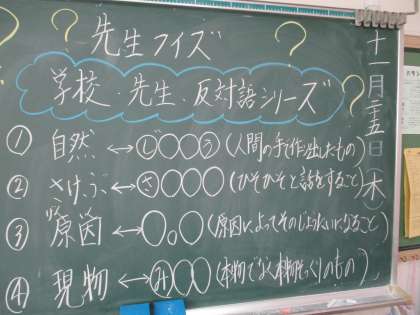 ? 先生クイズ ?
学校・先生・反対語シリーズ ?
① 自然 ↔ じ○○う (人間の手で作り出したもの)
② さけぶ ↔ さ○○○ (ひそひそと話をすること)
③ 原因 ↔ ○。○ (原因によってそのじょたいになること)
④ 現物 ↔ み○○ (本物でなく本物そっくりのもの)
十一月二十五日(木)